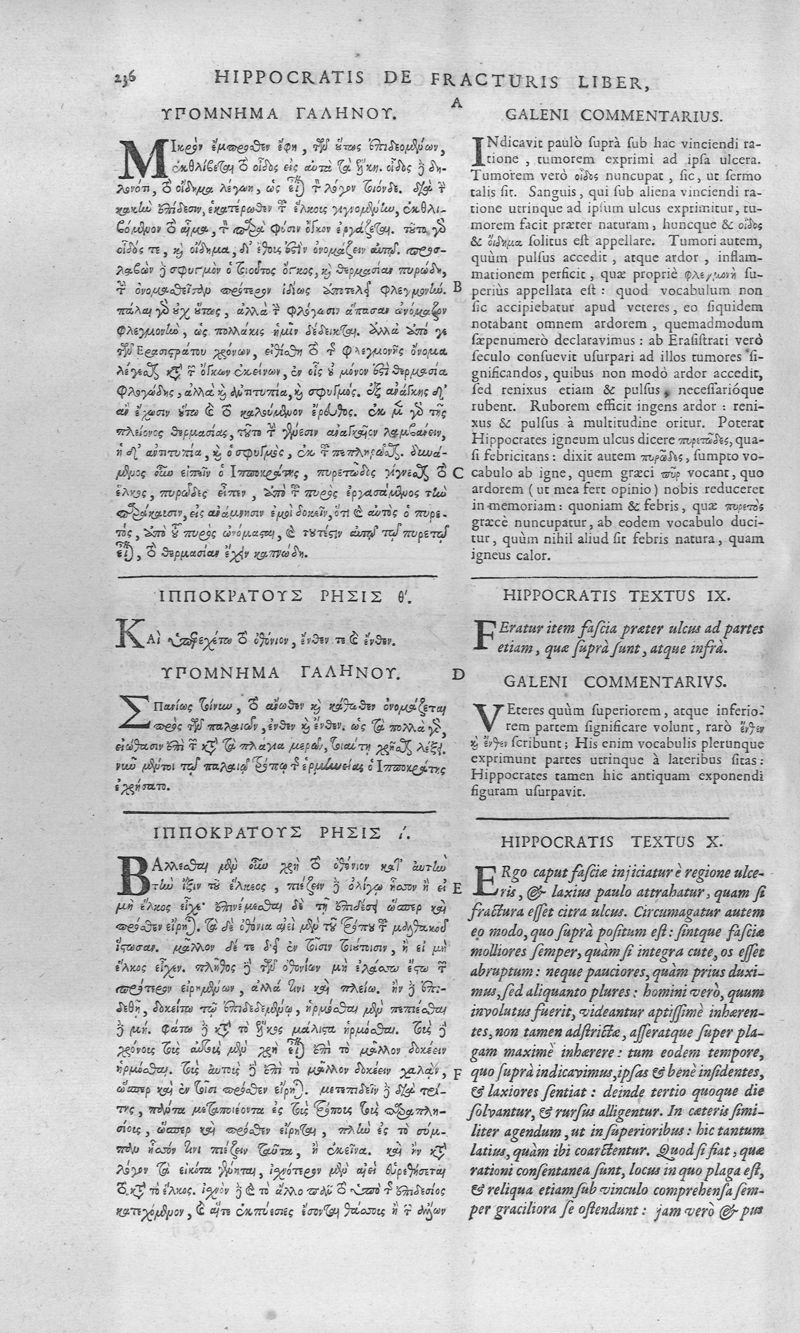 236 HIPPOCRATIS DE FRACTURIS LIBER,
A
ΥΠΟΜΝΗΜΑ ΓΑΛΗΝΟΥ.
ΜΙκρὸν ἔμπροσθεν ἔφη, τῶν οὕτως ἐπιδεομένων,
ἐκθλίβεσθαι τὸ οἶδος εἰς αὐτὰ τὰ ἕλκη. οἶδος δὲ δη-
λονότι, τὸ οἴδημα λέγων, ὡς εἶναι τὸν λόγον τοιόνδε. διὰ τὴν
κακὴν ἐπίδεσιν, ἑκατέρωθεν τοῦ ἕλκους γιγνομένην, ἐκθλι-
βόμενον τὸ αἷμα, τὸν παρὰ φύσιν ὄγκον ἐργάζεται. τοῦτο γὰρ
οἶδός τε, καὶ οἴδημα, δι' ἔθους ἐστὶν ὀνομάζειν αὐτῷ. προσ-
λαβὼν δὲ σφυγμὸν ὁ τοιοῦτος ὄγκος, καὶ θερμασίαν πυρώδη,
τὴν ὀνομασθεῖσαν πρότερον ἰδίως ἀποτελεῖ φλεγμονήν. B
πάλαι γὰρ οὐχ οὕτως, ἀλλὰ τὴν φλόγωσιν ἅπασαν ὠνόμαζον
φλεγμονὴν, ὡς πολλάκις ἡμῖν δέδεικται. ἀλλὰ ἀπό γε
τῶν Ἐρασιστράτου χρόνων, εἰθίσθη τὸ τῆς φλεγμονῆς ὄνομα
λέγεσθαι κατὰ τῶν ὄγκων ἐκείνων, ἐν οἷς οὐ μόνον ἐστὶ θερμασία
φλογώδης, ἀλλὰ καὶ ἀντιτυπία, καὶ σφυγμός. ἐξ ἀνάγκης δ'
ἂν ἔχωσιν οὗτοι καὶ τὸ καλούμενον ἔρευθος. ἐκ μὲν γὰρ τῆς
πλείονος θερμασίας, τοῦτο τὴν γένεσιν ἀναγκαῖον λαμβάνειν,
ἡ δ' ἀντιτυπία, καὶ ὁ σφυγμὸς, ἐκ τοῦ πεπληρῶσθαι. δυνά-
μενος οὖν εἰπεῖν ὁ Ἱπποκράτης, πυρετῶδες γίγνεσθαι τὸ C
ἕλκος, πυρῶδες εἶπεν, ἀπὸ τοῦ πυρὸς ἐργασάμενος τὴν
εἰς ἀνάμνησιν ἐμοὶ δοκεῖν, ὅτι καὶ αὐτὸς ὁ πυρε-
τὸς, ἀπὸ τοῦ πυρὸς ὠνόμασται, καὶ τοῦτ' ἔστιν αὐτῷ τῷ πυρετῷ
εἶναι, τὸ θερμασίαν ἔχειν καπνώδη.
ΙΠΠΟΚΡΑΤΟΥΣ ΡΗΣΙΣ θ'.
ΚΑὶ ὑπερεχέτω τὸ ὀθόνιον, ἔνθεν τε καὶ ἔνθεν.
ΥΠΟΜΝΗΜΑ ΓΑΛΗΝΟΥ. D
ΣΠανίως τείνων, τὸ ἄνωθεν καὶ κάτωθεν ὀνομάζεται
πρὸς τῶν παλαιῶν, ἔνθεν καὶ ἔνθεν. ὡς τὰ πολλὰ γὰρ,
εἰώθασιν ἐπὶ τῶν κατὰ τὰ πλάγια μερῶν, τοιαύτῃ χρῆσθαι λέξει.
νυνὶ μέντοι τῷ παλαιῷ τρόπῳ τῆς ἑρμηνείας ὁ Ἱπποκράτης
ἐχρήσατο.
ΙΠΠΟΚΡΑΤΟΥΣ ΡΗΣΙΣ ί.
ΒΑλλεσθαι μὲν οὖν χρὴ τὸ ὀθόνιον κατ' αὐτὴν
τὴν ἴξιν τοῦ ἕλκεος, πιέζειν δὲ ὀλίγῳ ἧσσον ἢ εἰ E
μὴ ἕλκος εἶχε· ἐπινέμεσθαι δὲ τῇ ἐπιδέσει ὥσπερ καὶ
πρόσθεν εἴρηται. τὰ δὲ ὀθόνια αἰεὶ μὲν τοῦ τρόπου τοῦ μαλθακοῦ
ἔστωσαν. μᾶλλον δέ τε δεῖ ἐν τοῖσιν τοιούτοισιν, ἢ εἰ μὴ
ἕλκος εἶχεν. πλῆθος δὲ τῶν ὀθονίων μὴ ἐλάσσω ἔστω τῶν
πρότερον εἰρημένων, ἀλλά τινι καὶ πλείω. ἢν δὲ ἐπι-
δεθῇ, δοκείτω τῷ ἐπιδεδεμένῳ, ἡρμόσθαι μὲν πεπιέσθαι
δὲ μή. φάτω δὲ κατὰ τὸ ἕλκος μάλιστα ἡρμόσθαι. τοὺς δὲ
χρόνους τοὺς αὐτοὺς μὲν χρὴ εἶναι ἐπὶ τὸ μᾶλλον δοκέειν
ἡρμόσθαι. τοὺς αὐτοὺς δὲ ἐπὶ τὸ μᾶλλον δοκέειν χαλᾶν, F
ὥσπερ καὶ ἐν τοῖσι πρόσθεν εἴρηται. μετεπιδεῖν δὲ διὰ τρί-
της, πάντα μεταποιέοντα ἐς τοὺς τρόπους τοὺς παραπλη-
σίους, ὥσπερ καὶ πρόσθεν εἴρηται, πλὴν ἐς τὸ σύμ-
παν ἧσσόν τινι πιέζειν ταῦτα, ἢ ἐκεῖνα. καὶ ἢν κατὰ
λόγον τὰ εἰκότα γένηται, ἰσχνότερον μὲν αἰεὶ εὑρεθήσεται
τὸ κατὰ τὸ ἕλκος. ἰσχνὸν δὲ καὶ τὸ ἄλλο πᾶν τὸ ὑπὸ τῆς ἐπιδέσιος
κατεχόμενον, καὶ αἵτε ἐκπυέσιες ἔσονται θάσσους ἢ τῶν ἄλλων
GALENI COMMENTARIUS.
INdicavit paulò suprà sub hac vinciendi ra-
tione, tumorem exprimi ad ipsa ulcera.
Tumorem verò οἶδος nuncupat, sic, ut sermo
talis sit. Sanguis, qui sub aliena vinciendi ra-
tione utrinque ad ipsum ulcus exprimitur, tu-
morem facit præter naturam, huncque & οἶδος
& οἴδημα solitus est appellare. Tumori autem,
quùm pulsus accedit, atque ardor, inflam-
mationem perficit, quæ propriè φλεγμονὴ su-
periùs appellata est: quod vocabulum non
sic accipiebatur apud veteres, eo siquidem
notabant omnem ardorem, quemadmodum
sæpenumerò declaravimus: ab Erasistrati verò
seculo consuevit usurpari ad illos tumores si-
gnificandos, quibus non modò ardor accedit,
sed renixus etiam & pulsus, necessarióque
rubent. Ruborem efficit ingens ardor: reni-
xus & pulsus à multitudine oritur. Poterat
Hippocrates igneum ulcus dicere πυρετῶδες, qua-
si febricitans: dixit autem πυρῶδες, sumpto vo-
cabulo ab igne, quem græci πῦρ vocant, quo
ardorem (ut mea fert opinio) nobis reduceret
in memoriam: quoniam & febris, quæ πυρετὸς
græcè nuncupatur, ab eodem vocabulo duci-
tur, quùm nihil aliud sit febris natura, quam
igneus calor.
HIPPOCRATIS TEXTUS IX.
FEratur item fascia præter ulcus ad partes
etiam, quæ suprà sunt, atque infrà.
GALENI COMMENTARIVS.
VEteres quùm superiorem, atque inferio-
rem partem significare volunt, rarò ἔνθεν
καὶ ἔνθεν scribunt; His enim vocabulis plerunque
exprimunt partes utrinque à lateribus sitas:
Hippocrates tamen hic antiquam exponendi
figuram usurpavit.
HIPPOCRATIS TEXTUS X.
ERgo caput fasciæ injiciatur è regione ulce-
ris, & laxius paulo attrahatur, quam si
fractura esset citra ulcus. Circumagatur autem
eo modo, quo suprà positum est: sintque fasciæ
molliores semper, quàm si integra cute, os esset
abruptum: neque pauciores, quàm prius duxi-
mus, sed aliquanto plures: homini verò, quum
involutus fuerit, videantur aptissimè inhæren-
tes, non tamen adstrictæ, asseratque super pla-
gam maximè inhærere: tum eodem tempore,
quo suprà indicavimus, ipsas & benè insidentes,
& laxiores sentiat: deinde tertio quoque die
solvantur, & rursus alligentur. In cæteris simi-
liter agendum, ut in superioribus: hic tantum
latius, quàm ibi coarctentur. Quod si fiat, quæ
rationi consentanea sunt, locus in quo plaga est,
& reliqua etiam sub vinculo comprehensa sem-
per graciliora se ostendunt: jam verò & pus